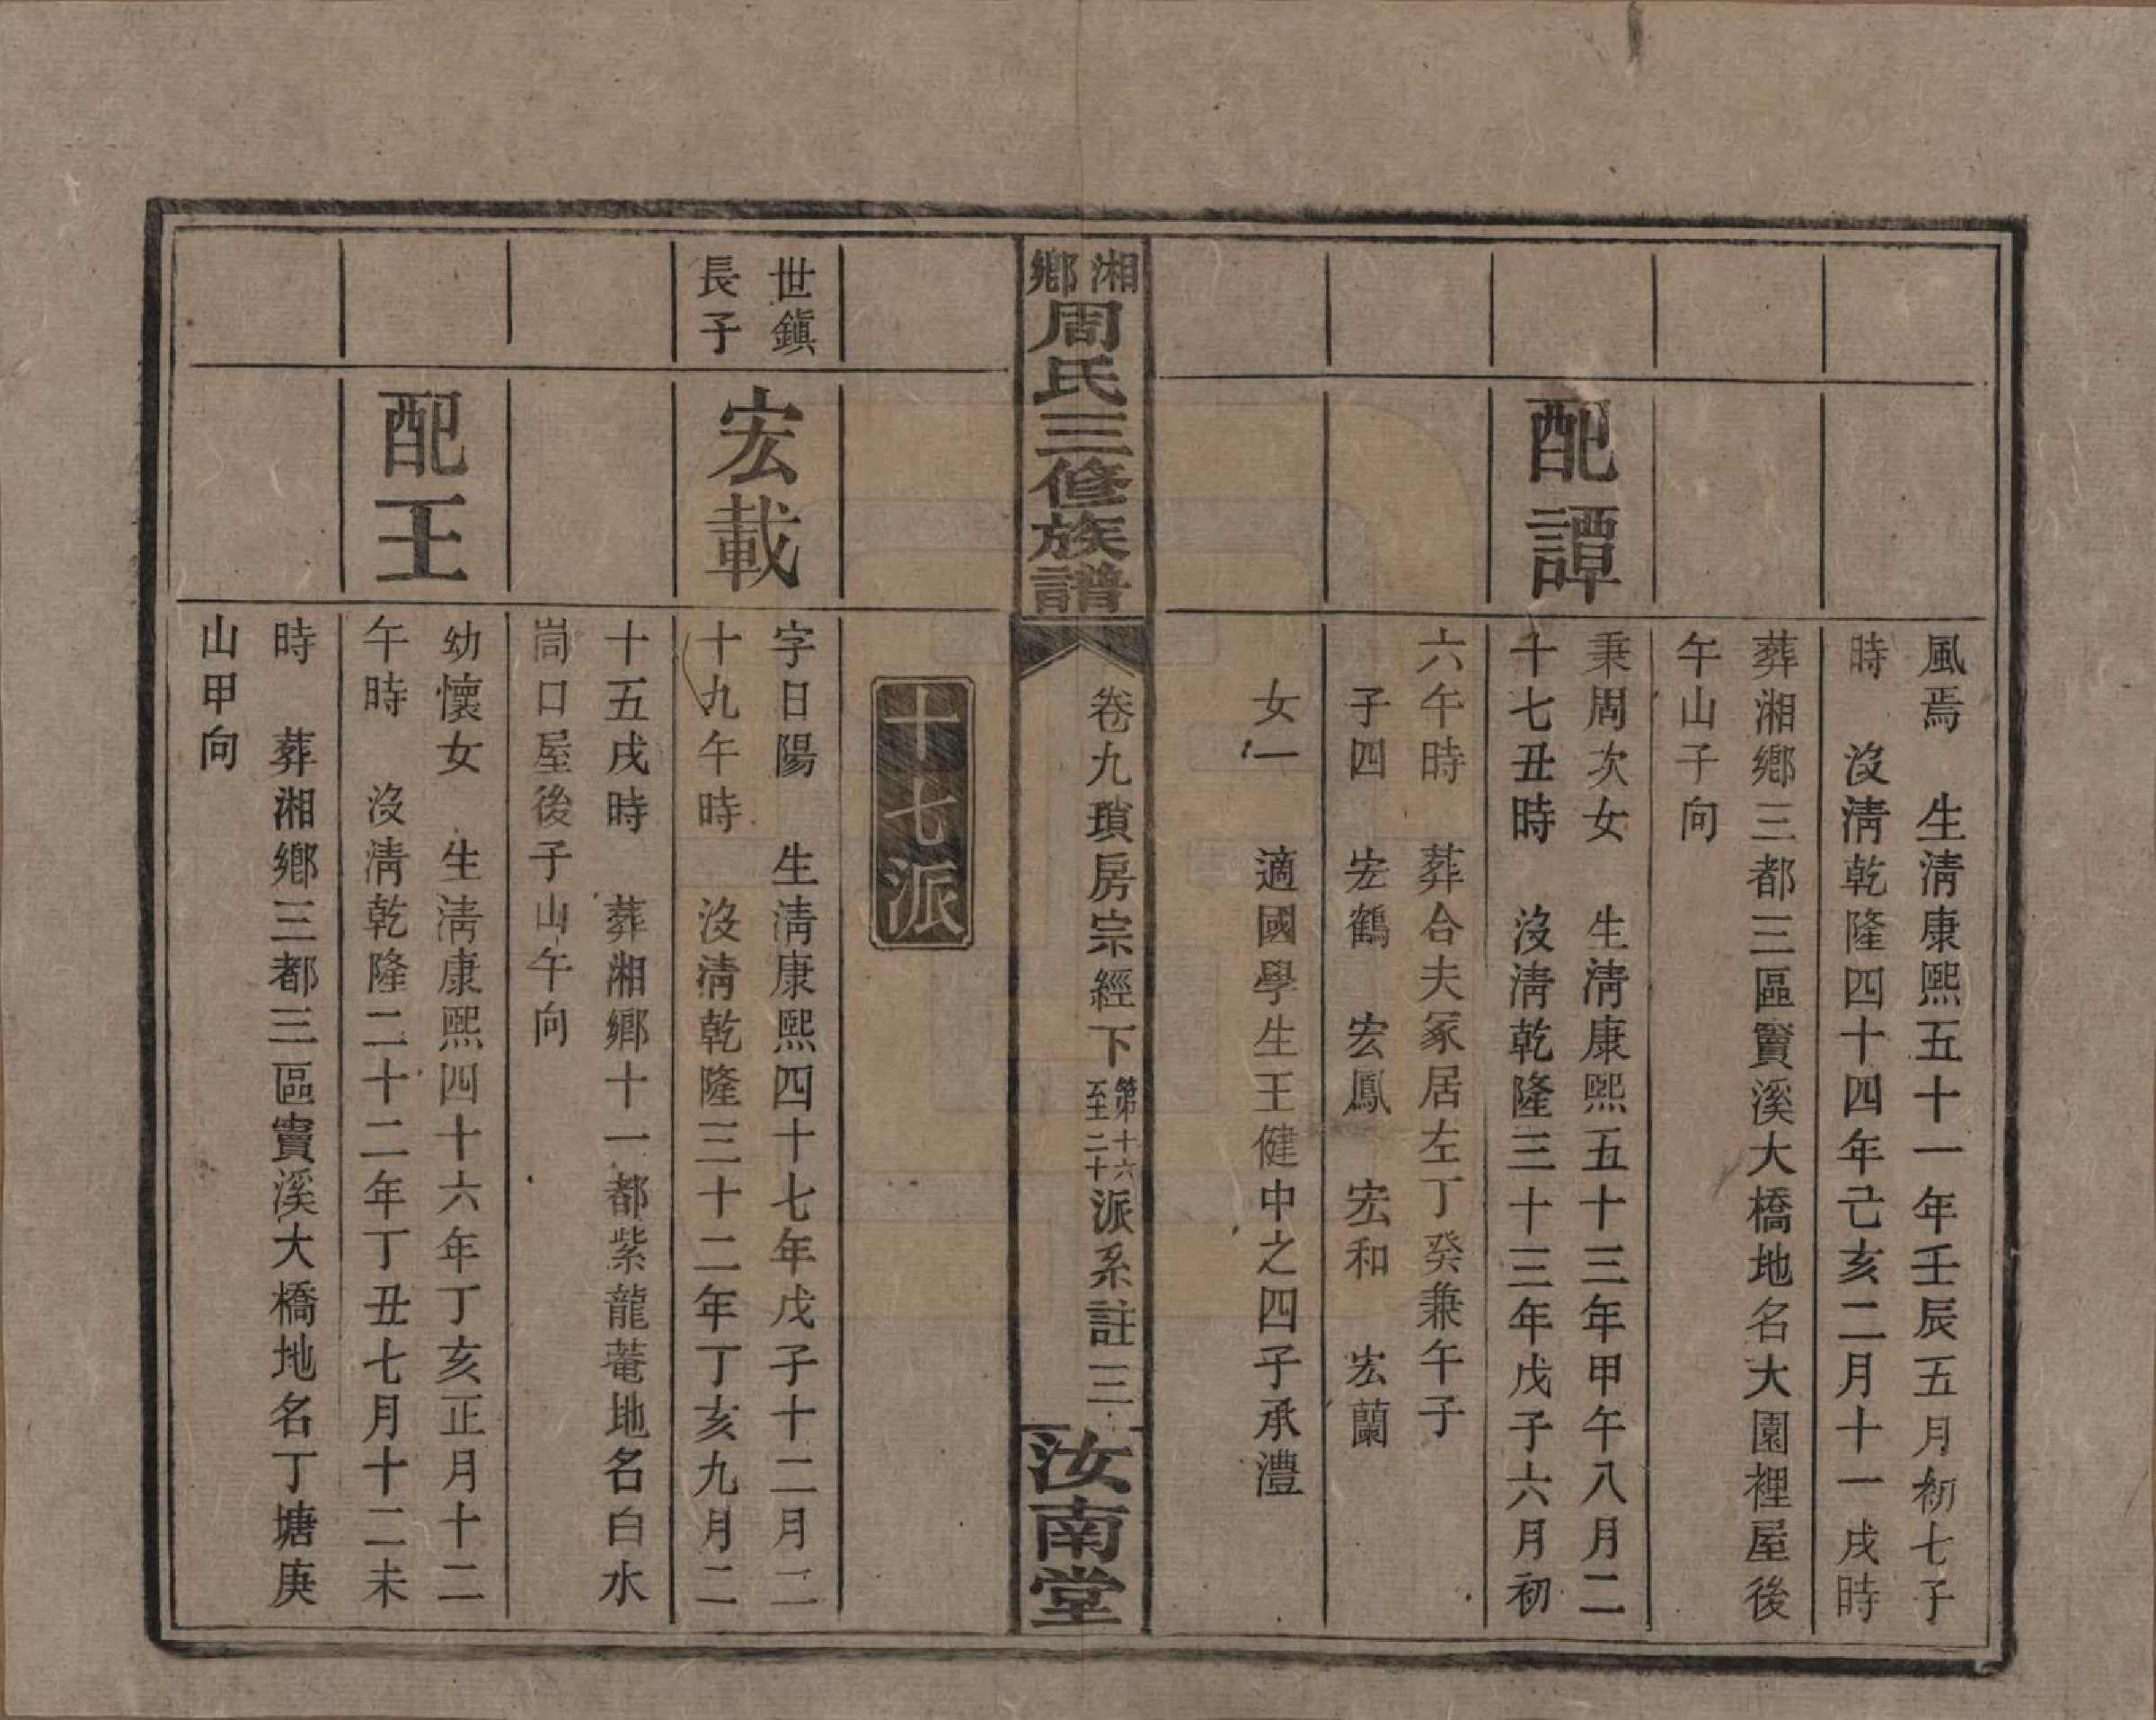 風焉　生淸康熙五十一年壬辰五月初七子
時　沒淸乾隆四十四年己亥二月十一戌時
葬湘鄉三都三區竇溪大橋地名大園裡屋後
午山子向
配譚
秉周次女　生淸康熙五十三年甲午八月二
十七丑時　沒淸乾隆三十三年戊子六月初
六午時　葬合夫冢居左丁癸兼午子
子四　宏鶴　宏鳳　宏和　宏蘭
女一　適國學生王健中之四子承灃
湘鄉周氏三修族譜
卷九瑣房宗經下第十六至二十派系註　三
汝南堂
十七派
世鎭
長子
宏載
字日陽　生淸康熙四十七年戊子十二月二
十九午時　沒淸乾隆三十二年丁亥九月二
十五戌時　葬湘鄉十一都紫龍菴地名白水
峝口屋後子山午向
配王
幼懷女　生淸康熙四十六年丁亥正月十二
午時　沒淸乾隆二十二年丁丑七月十二未
時　葬湘鄉三都三區竇溪大橋地名丁塘庚
山甲向